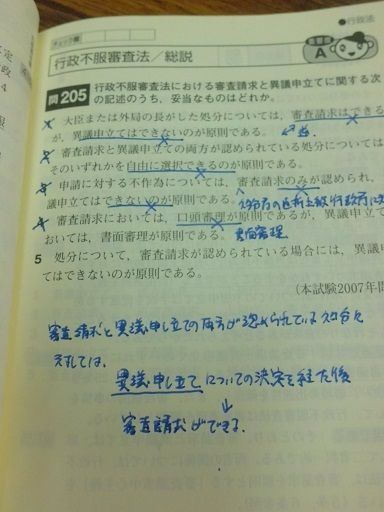 ●行政法
チェック欄
行政不服審査法/総説
重要度 A
問205 行政不服審査法における審査請求と異議申立てに関する次
の記述のうち、妥当なものはどれか。
1 大臣または外局の長がした処分については、審査請求はでき
が、異議申立てはできないのが原則である。
2 審査請求と異議申立ての両方が認められている処分については
そのいずれかを自由に選択できるのが原則である。
3 申請に対する不作為については、審査請求のみが認められ、
議申立てはできないのが原則である。
4 審査請求においては、口頭審理が原則であるが、異議申立て
おいては、書面審理が原則である。 書面審理
5 処分について、審査請求が認められている場合には、異議申
てはできないのが原則である。
(本試験2007年問
審査請求と異議申し立ての両方が認められている処分に
対しては、
異議申し立てについての決定を経た後
↓
審査請求ができる。